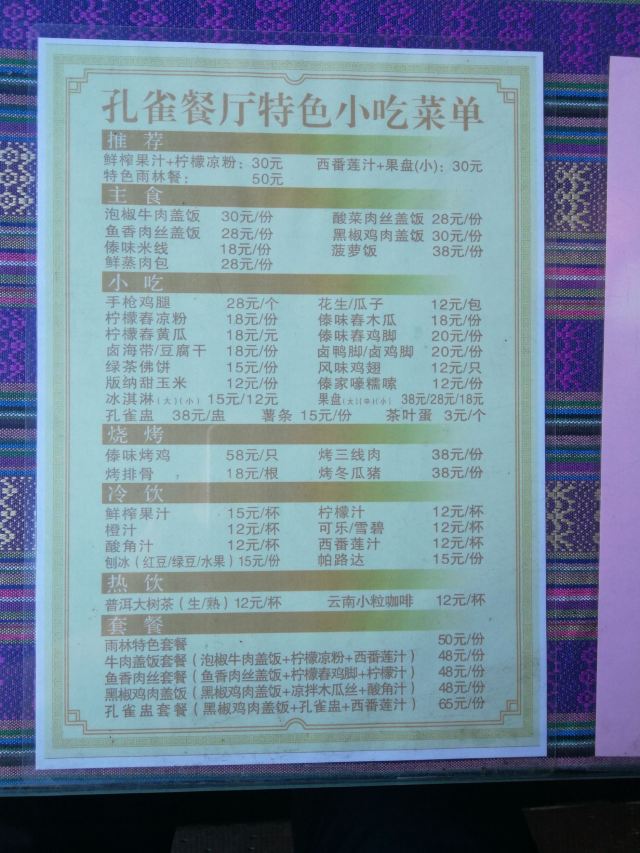 孔雀餐厅特色小吃菜单
推荐
鲜榨果汁+柠檬凉粉：30元 西番莲汁+果盘(小)：30元
特色雨林餐： 50元
主食
泡椒牛肉盖饭 30元/份 酸菜肉丝盖饭 28元/份
鱼香肉丝盖饭 28元/份 黑椒鸡肉盖饭 30元/份
傣味米线 18元/份 菠萝饭 38元/份
鲜蒸肉包 28元/份
小吃
手枪鸡腿 28元/个 花生/瓜子 12元/包
柠檬舂凉粉 18元/份 傣味舂木瓜 18元/份
柠檬舂黄瓜 18元/元 傣味舂鸡脚 20元/份
卤海带/豆腐干 18元/份 卤鸭脚/卤鸡脚 20元/份
绿茶佛饼 15元/份 风味鸡翅 12元/只
版纳甜玉米 12元/份 傣家嚎糯嗦 12元/份
冰淇淋(大)(小) 15元/12元 果盘(大)(中)(小) 38元/28元/18元
孔雀盅 38元/盅 薯条 15元/份 茶叶蛋 3元/个
烧烤
傣味烤鸡 58元/只 烤三线肉 38元/份
烤排骨 18元/根 烤冬瓜猪 38元/份
冷饮
鲜榨果汁 15元/杯 柠檬汁 12元/杯
橙汁 12元/杯 可乐/雪碧 12元/杯
酸角汁 12元/杯 西番莲汁 12元/杯
刨冰（红豆/绿豆/水果）15元/份 帕路达 15元/份
热饮
普洱大树茶（生/熟）12元/杯 云南小粒咖啡 12元/杯
套餐
雨林特色套餐 50元/份
牛肉盖饭套餐（泡椒牛肉盖饭+柠檬凉粉+西番莲汁） 48元/份
鱼香肉丝套餐（鱼香肉丝盖饭+柠檬舂鸡脚+柠檬汁） 48元/份
黑椒鸡肉盖饭（黑椒鸡肉盖饭+凉拌木瓜丝+酸角汁） 48元/份
孔雀盅套餐（黑椒鸡肉盖饭+孔雀盅+西番莲汁） 65元/份